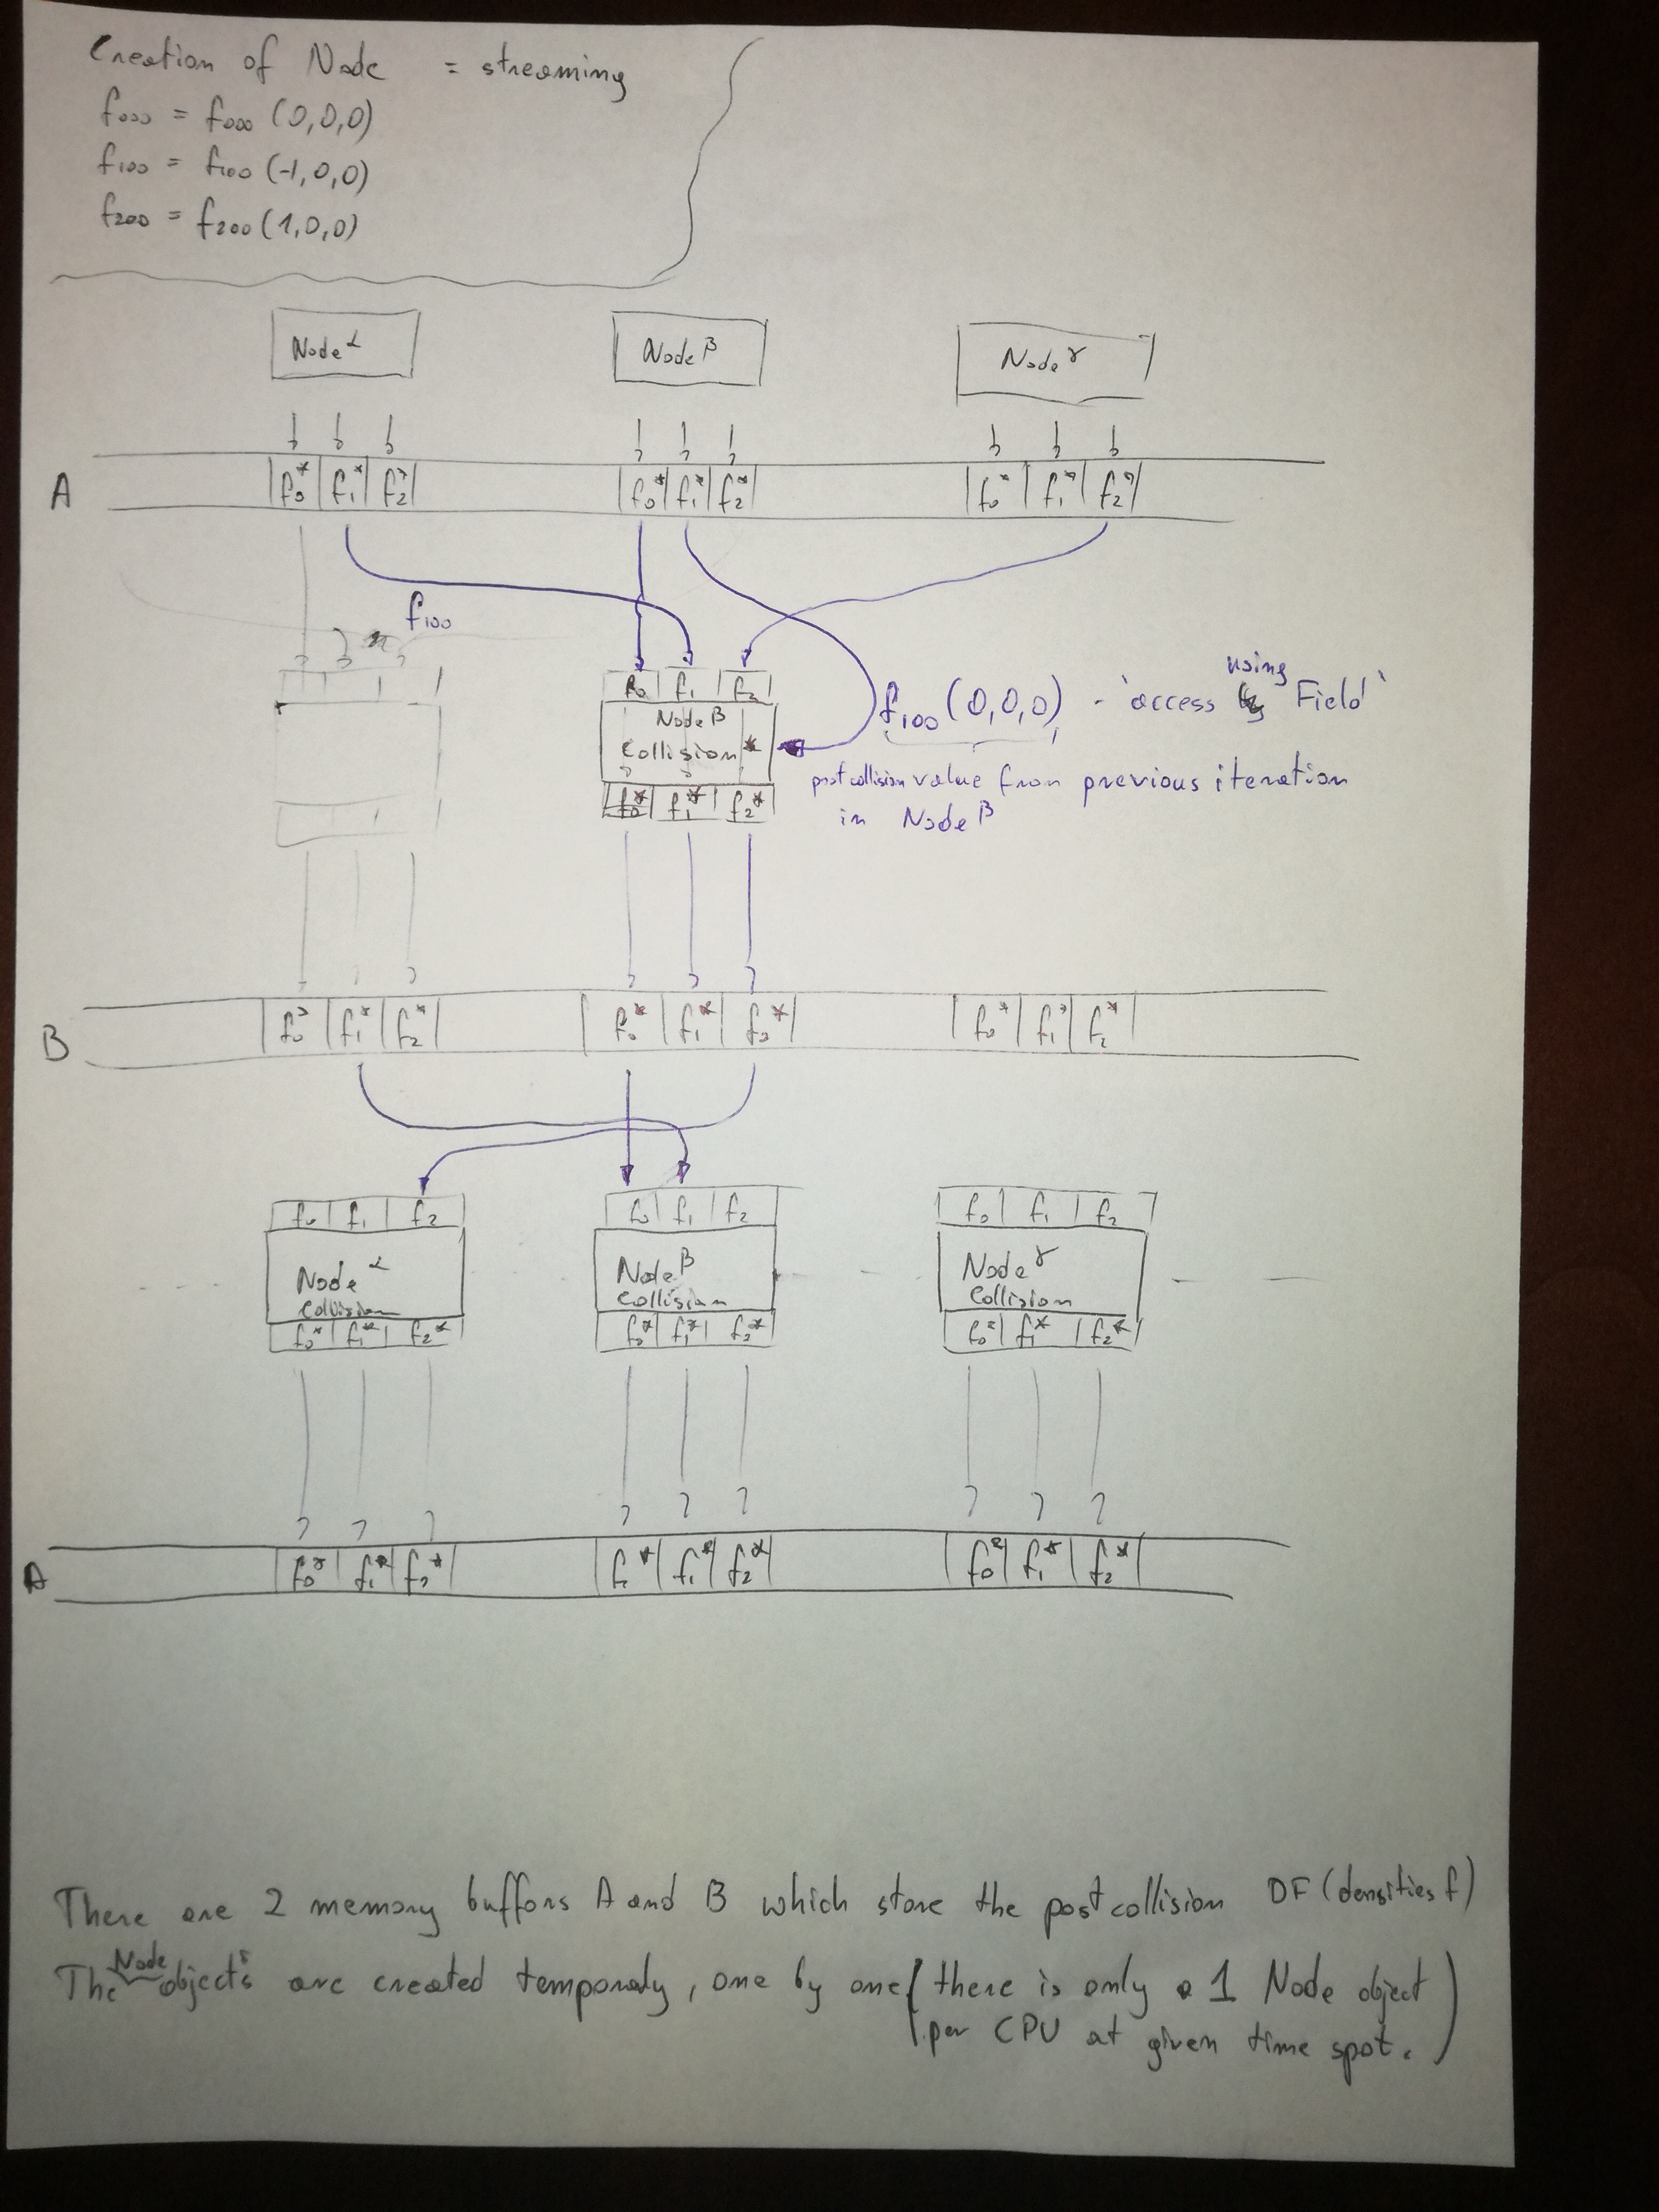 Creation of Node = streaming
f000 = f000 (0,0,0)
f100 = f100 (-1,0,0)
f200 = f200 (1,0,0)
Node α Node β Node γ
A
f0* f1* f2* f0* f1* f2* f0* f1* f2*
f100
f0 f1 f2
Node β
Collision*
f0* f1* f2*
f100 (0,0,0) - 'access using Field'
post collision value from previous iteration
in Node β
B
f0* f1* f2* f0* f1* f2* f0* f1* f2*
f0 f1 f2 f0 f1 f2 f0 f1 f2
Node α Node β Node γ
Collision Collision Collision
f0* f1* f2* f0* f1* f2* f0* f1* f2*
A
f0* f1* f2* f* f1* f2* f0* f1* f2*
There are 2 memory buffors A and B which store the post collision DF (densities f)
The Node objects are created temporaly, one by one (there is only a 1 Node object
per CPU at given time spot.)